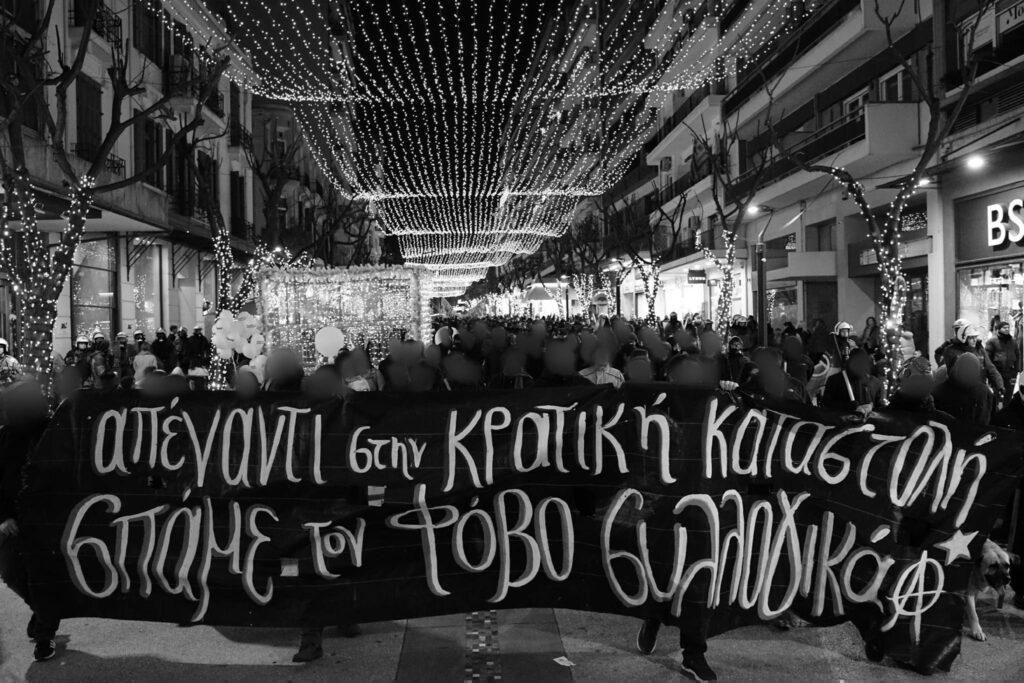 απέναντι στην κρατική καταστολή
σπάμε τον φόβο συλλογικά
BS